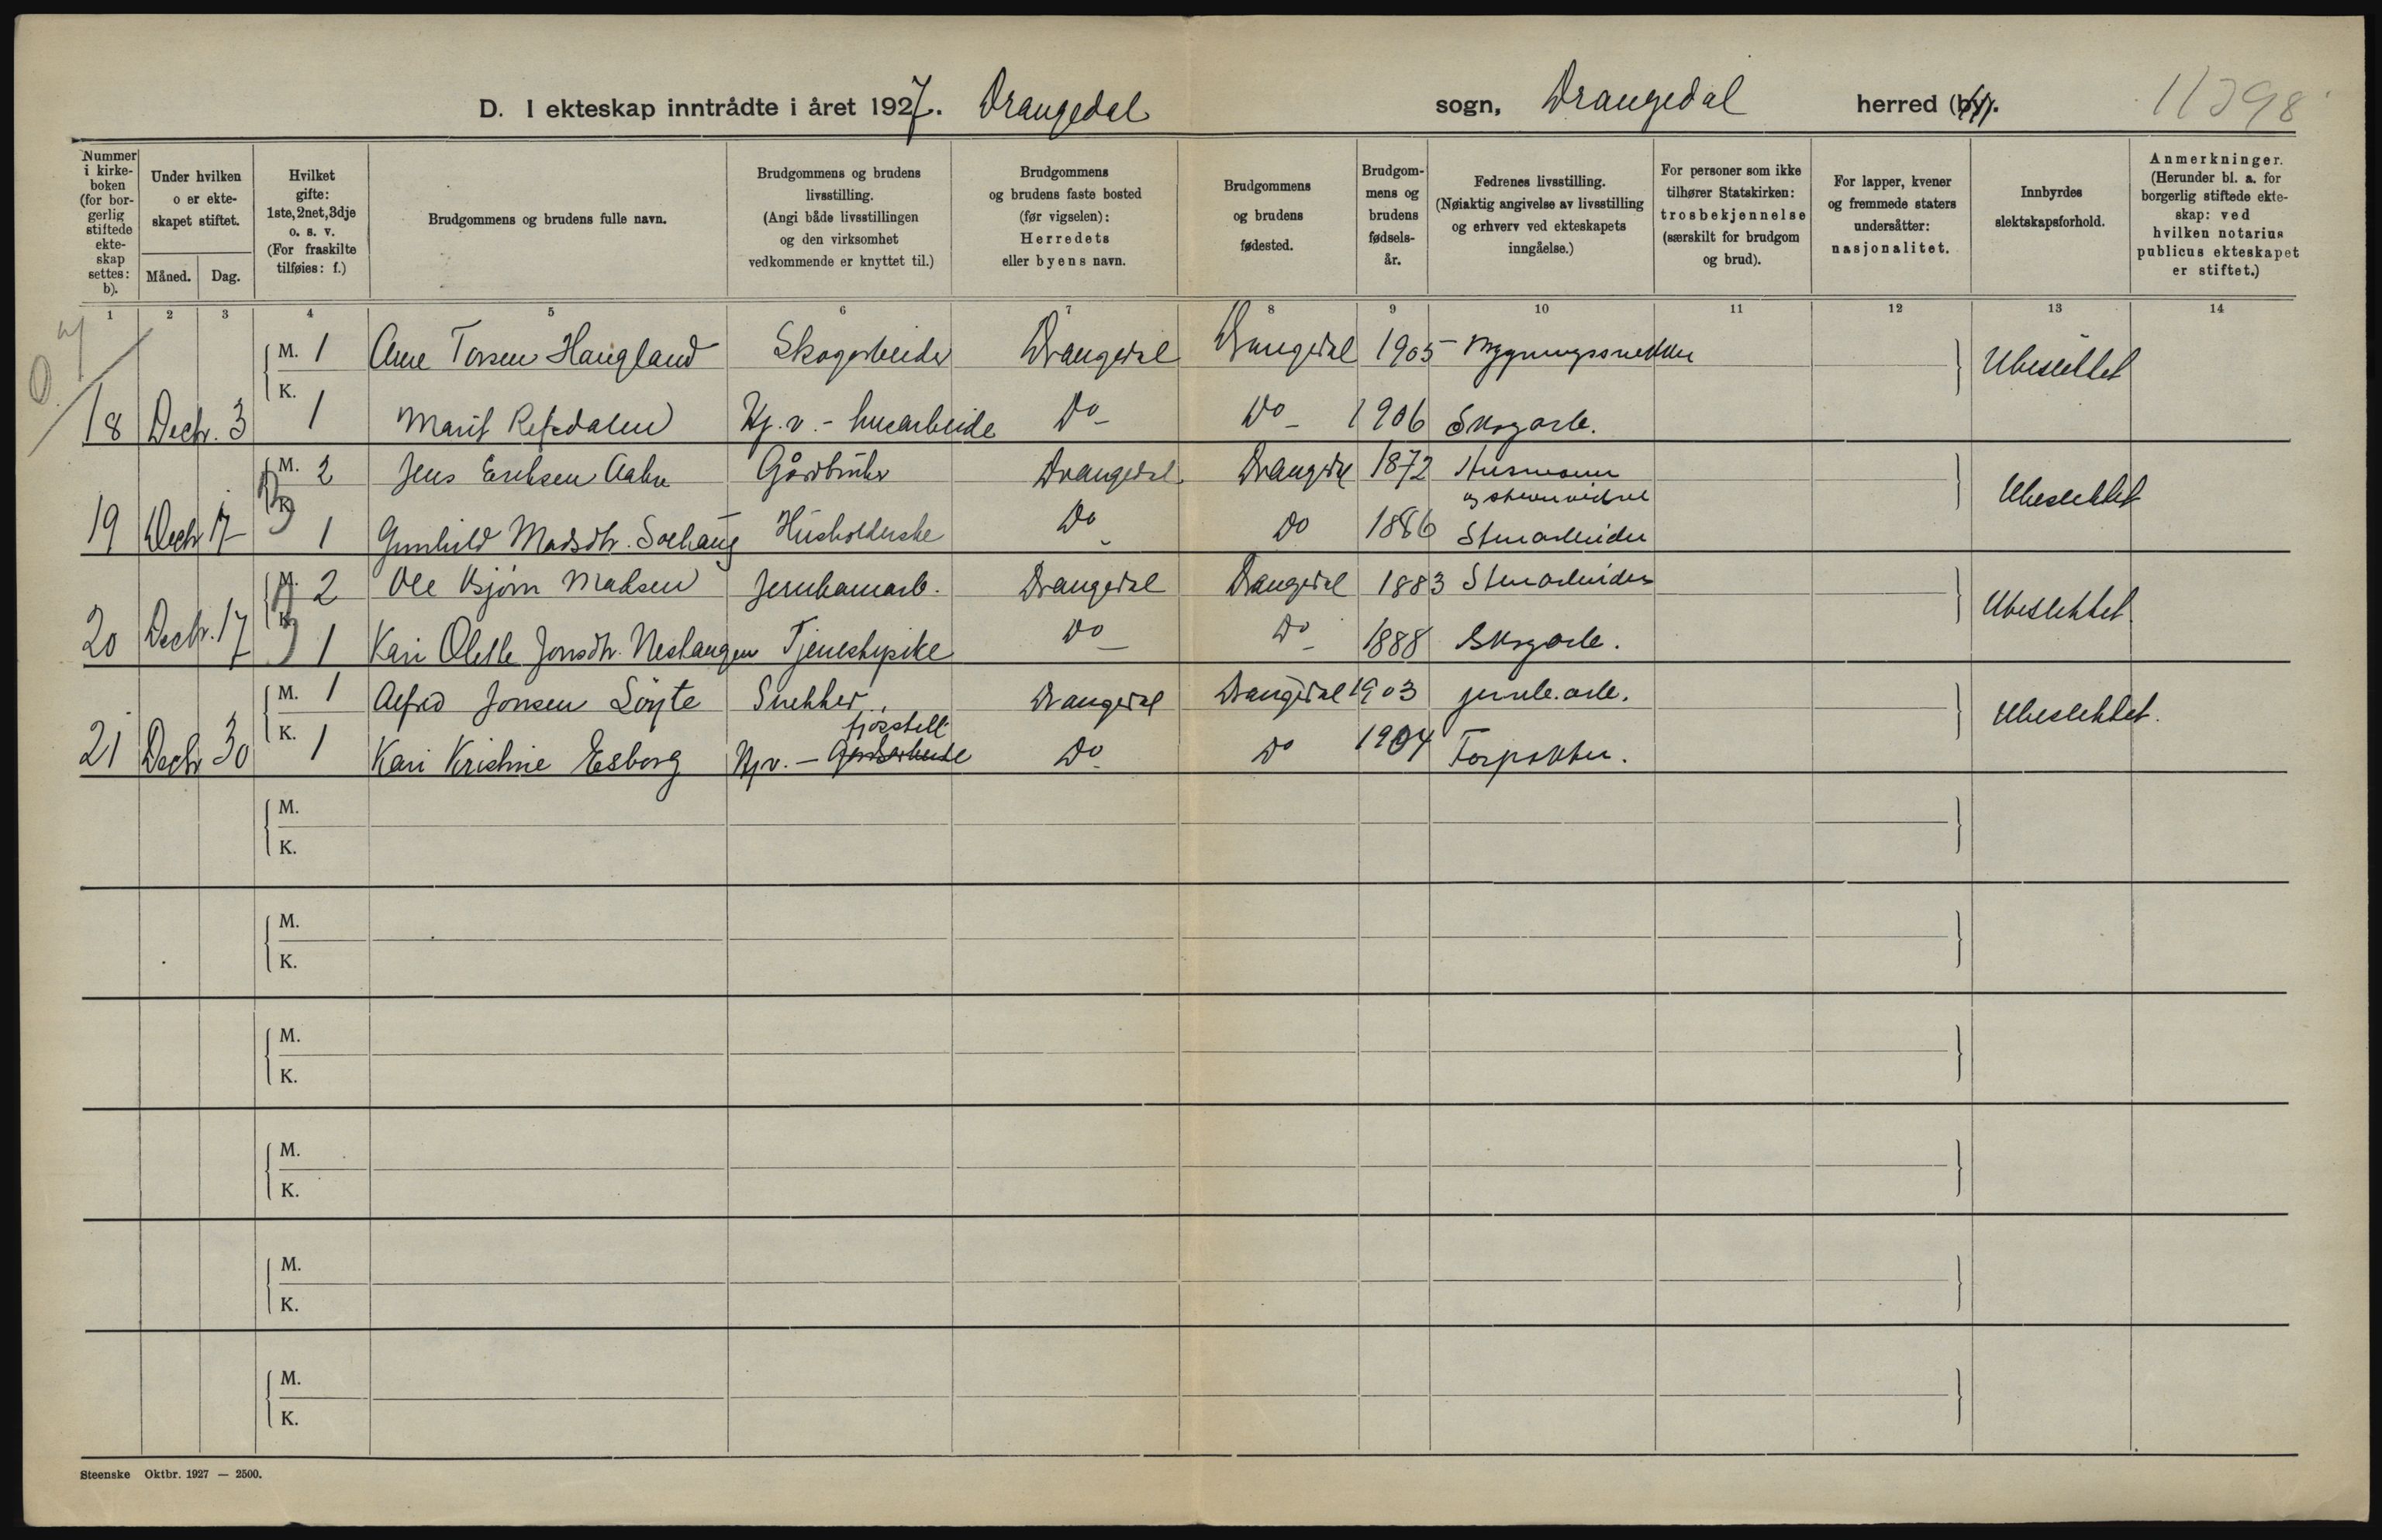 D. I ekteskap inntrådte i året 1927. Drangedal sogn, Drangedal herred (by). 11398
Nummer i kirkeboken (for borgerlig stiftede ekteskap settes: b).
Under hvilken o er ekteskapet stiftet.
Måned. Dag.
Hvilket gifte: 1ste, 2net, 3dje o. s. v. (For fraskilte tilføies: f.)
Brudgommens og brudens fulle navn.
Brudgommens og brudens livsstilling. (Angi både livsstillingen og den virksomhet vedkommende er knyttet til.)
Brudgommens og brudens faste bosted (før vigselen): Herredets eller byens navn.
Brudgommens og brudens fødested.
Brudgommens og brudens fødselsår.
Fedrenes livsstilling. (Nøiaktig angivelse av livsstilling og erhverv ved ekteskapets inngåelse.)
For personer som ikke tilhører Statskirken: trosbekjennelse (særskilt for brudgom og brud).
For lapper, kvener og fremmede staters undersåtter: nasjonalitet.
Innbyrdes slektskapsforhold.
Anmerkninger. (Herunder bl. a. for borgerlig stiftede ekteskap: ved hvilken notarius publicus ekteskapet er stiftet.)
1 2 3 4 5 6 7 8 9 10 11 12 13 14
M. 1 Arne Torsen Haugland Skogarbeider Drangedal Drangedal 1905 Bygningssnekker Ubeslektet
18 Decbr. 3 K. 1 Marit Refsdalen Hj. v. - husarbeide Do - Do - 1906 Skogarb.
M. 2 Jens Eriksen Aabø Gårdbruker Drangedal Drangedal 1872 Husmann Ubeslektet
19 Decbr 17 K. 1 Gunhild Madsdtr. Solhaug Husholderske Do - Do 1886 Stenarbeider
M. 2 Ole Bjørn Madsen Jernbanearb. Drangedal Drangedal 1883 Stenarbeider Ubeslektet
20 Decbr. 17 K. 1 Kari Oletle Jonsdtr. Neshaugen Tjenestepike Do - Do - 1888 Skogarb.
M. 1 Alfred Jonsen Löyte Snekker Drangedal Drangedal 1903 jernb. arb. Ubeslektet.
fjosstell
21 Decbr 30 K. 1 Kari Kristine Esborg Hj v. - Gårdsarbeide Do - Do 1904 Forpakter.
M.
K.
M.
K.
M.
K.
M.
K.
M.
K.
M.
K.
Steenske Oktbr. 1927 — 2500.